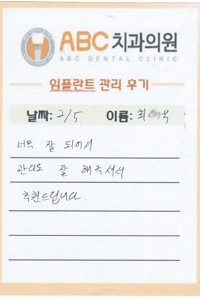 ABC 치과의원
ABC DENTAL CLINIC
임플란트 관리 후기
날짜: 2/5 이름: 최
너무 잘 되어서
관리도 잘 해주셔서
추천드립니다.